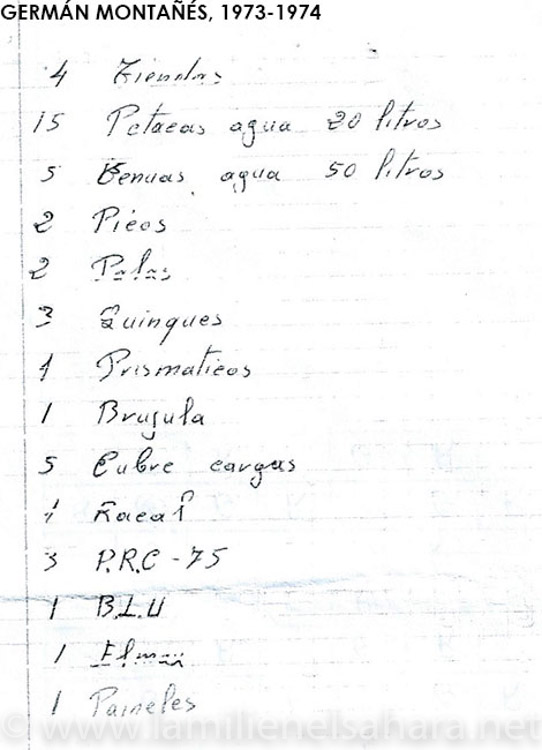 GERMÁN MONTAÑÉS, 1973-1974
4 Tiendas
15 Petacas agua 20 litros
5 Benuas agua 50 litros
2 Picos
2 Palas
3 Quinques
1 Prismaticos
1 Brujula
5 Cubre cargas
1 Racal
3 P.R.C - 75
1 B.L.U
1
1 Paineles
© www.lamilienelsahara.net